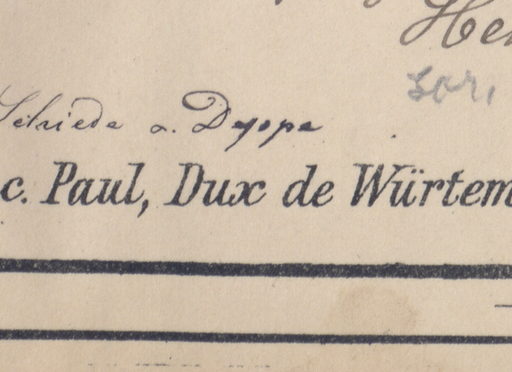 Her
Sor,
Schiede a. Deppe
c. Paul, Dux de Würtem